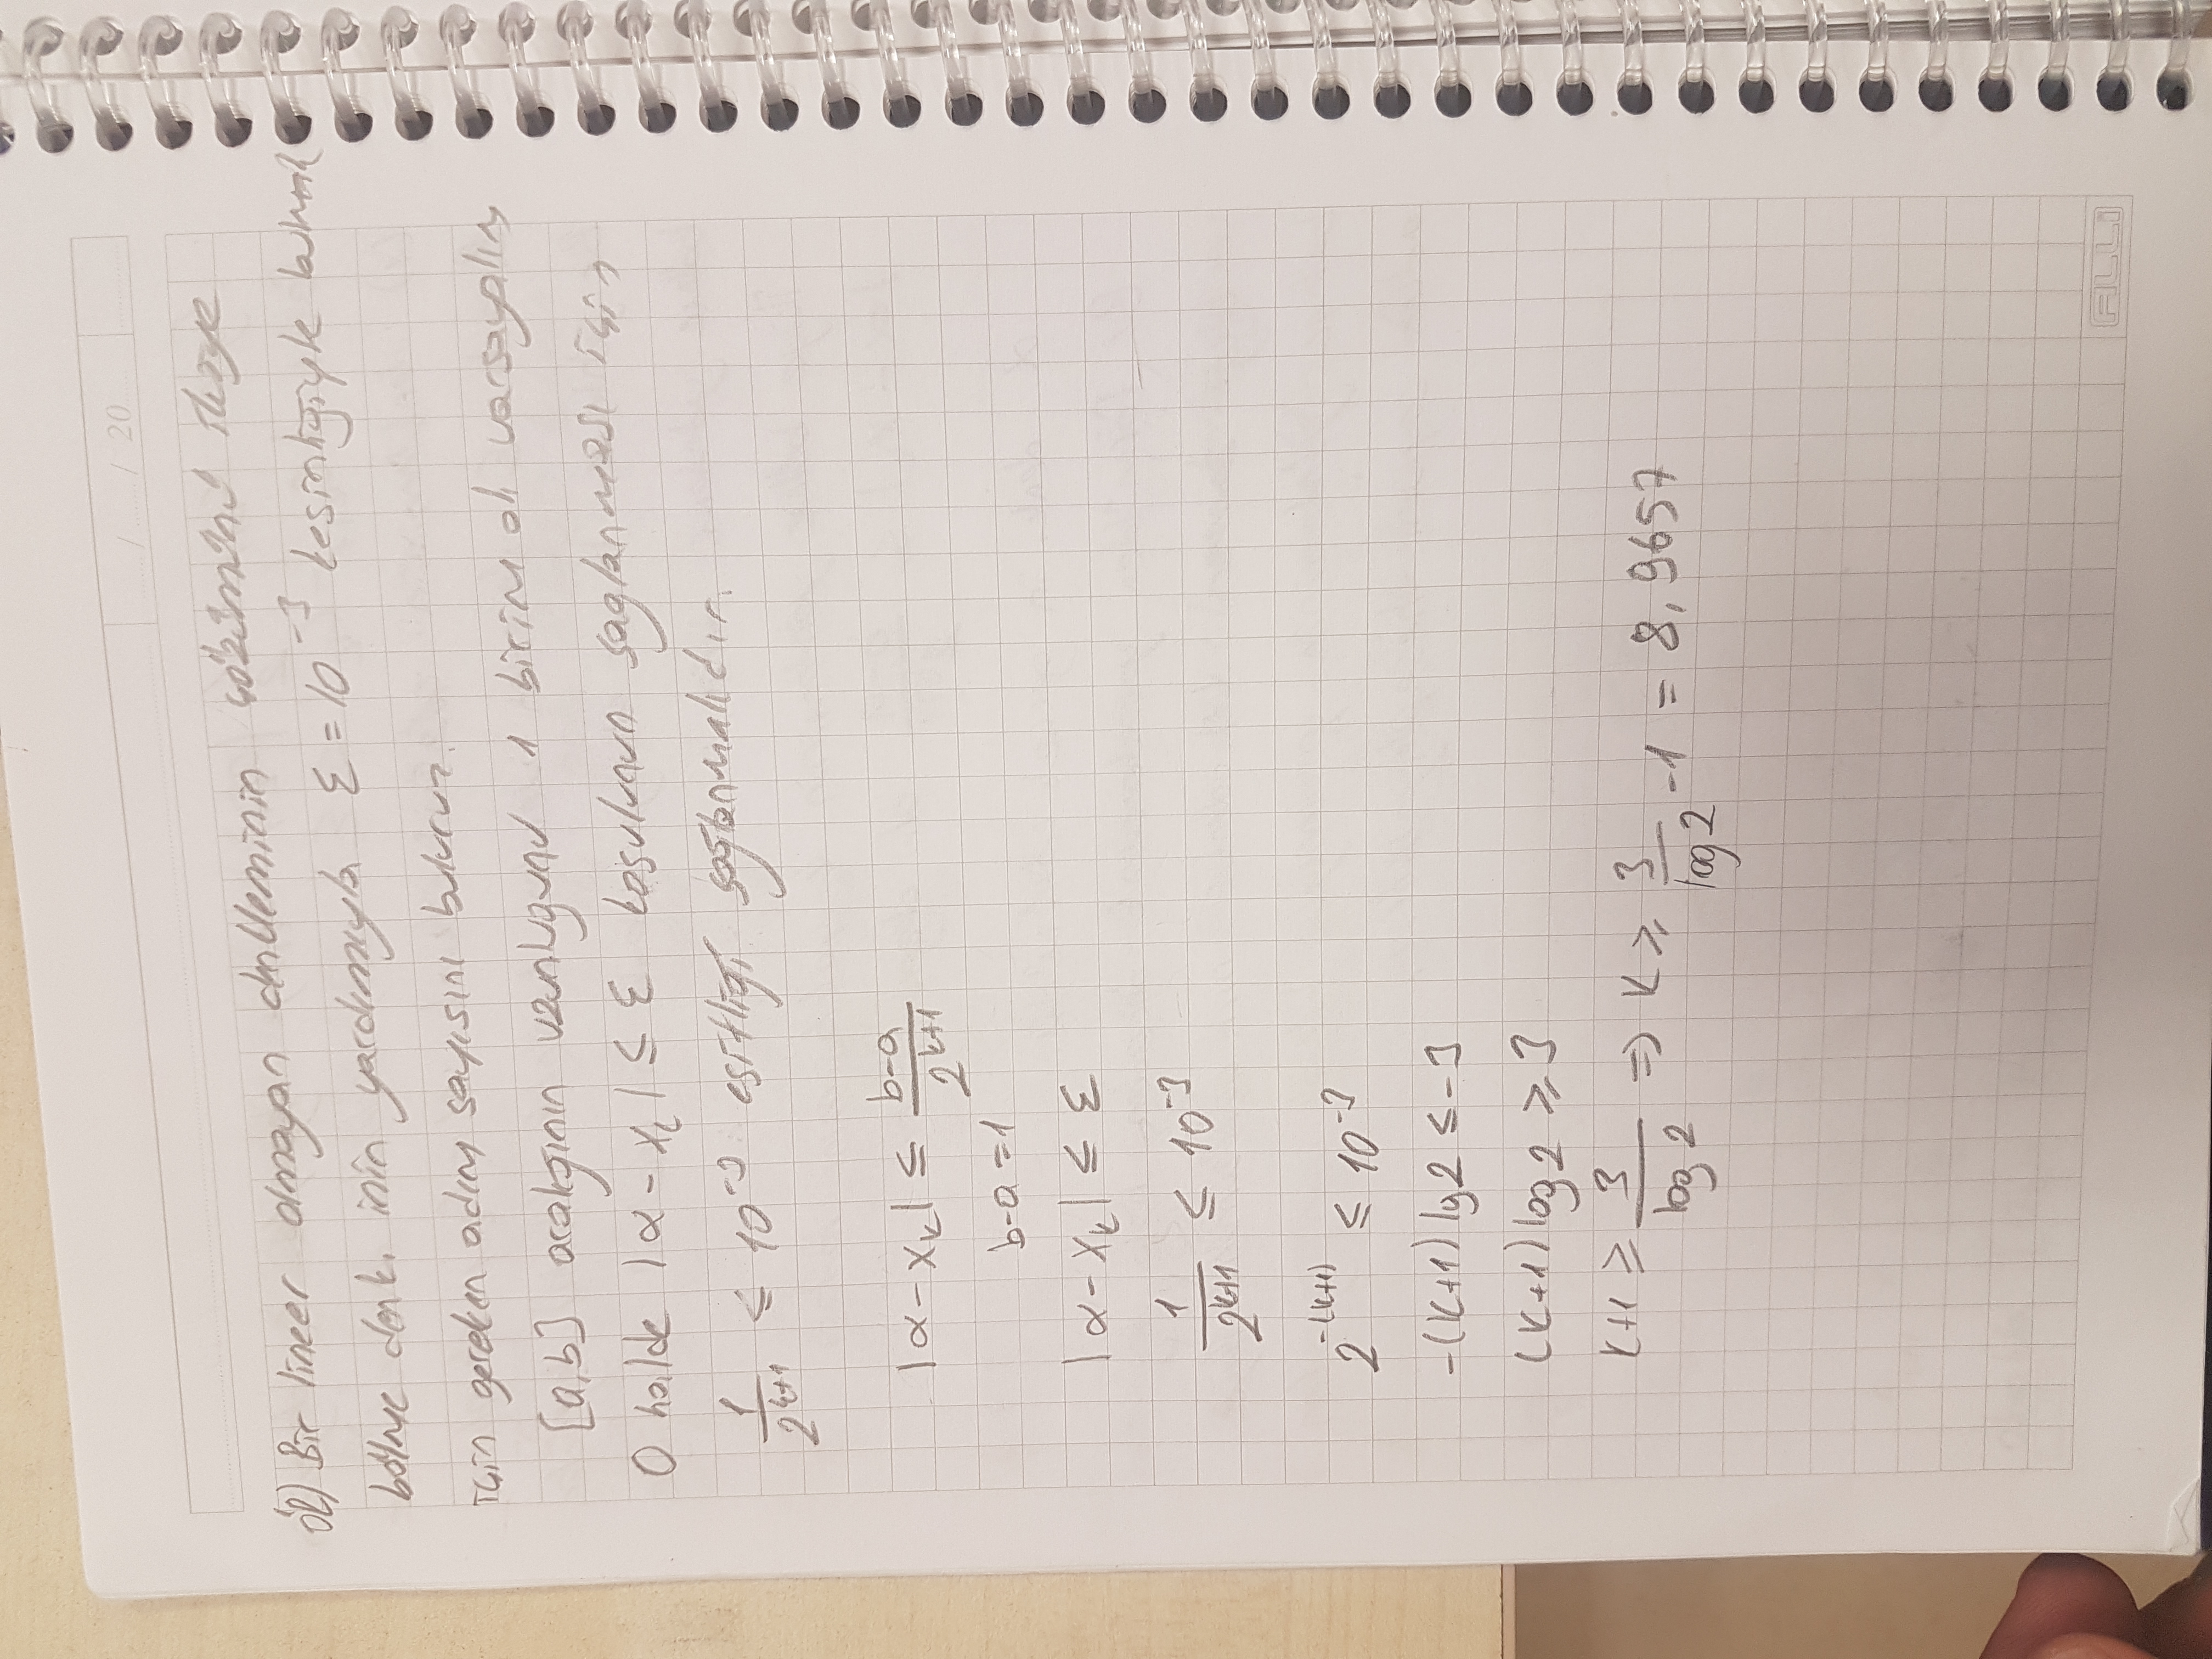 / / 20
ör) Bir lineer olmayan denkleminin çözümünü ikiye
bölme denk. inin yardımıyla ε = 10⁻³ kesinliğiyle bulmak
için gereken adım sayısını bulunuz.
[a,b] aralığının uzunluğunu 1 birim ol. varsayalım,
O halde |α - xₖ| ≤ ε koşulunun sağlanması için
1/2ᵏ⁺¹ ≤ 10⁻³ eşitliği sağlanmalıdır.
|α - xₖ| ≤ (b-a)/2ᵏ⁺¹
b-a = 1
|α - xₖ| ≤ ε
1/2ᵏ⁺¹ ≤ 10⁻³
2⁻⁽ᵏ⁺¹⁾ ≤ 10⁻³
-(k+1) lg2 ≤ -3
(k+1) log2 ≥ 3
k+1 ≥ 3/log2 ⇒ k ≥ 3/log2 - 1 = 8,9657
ALLi